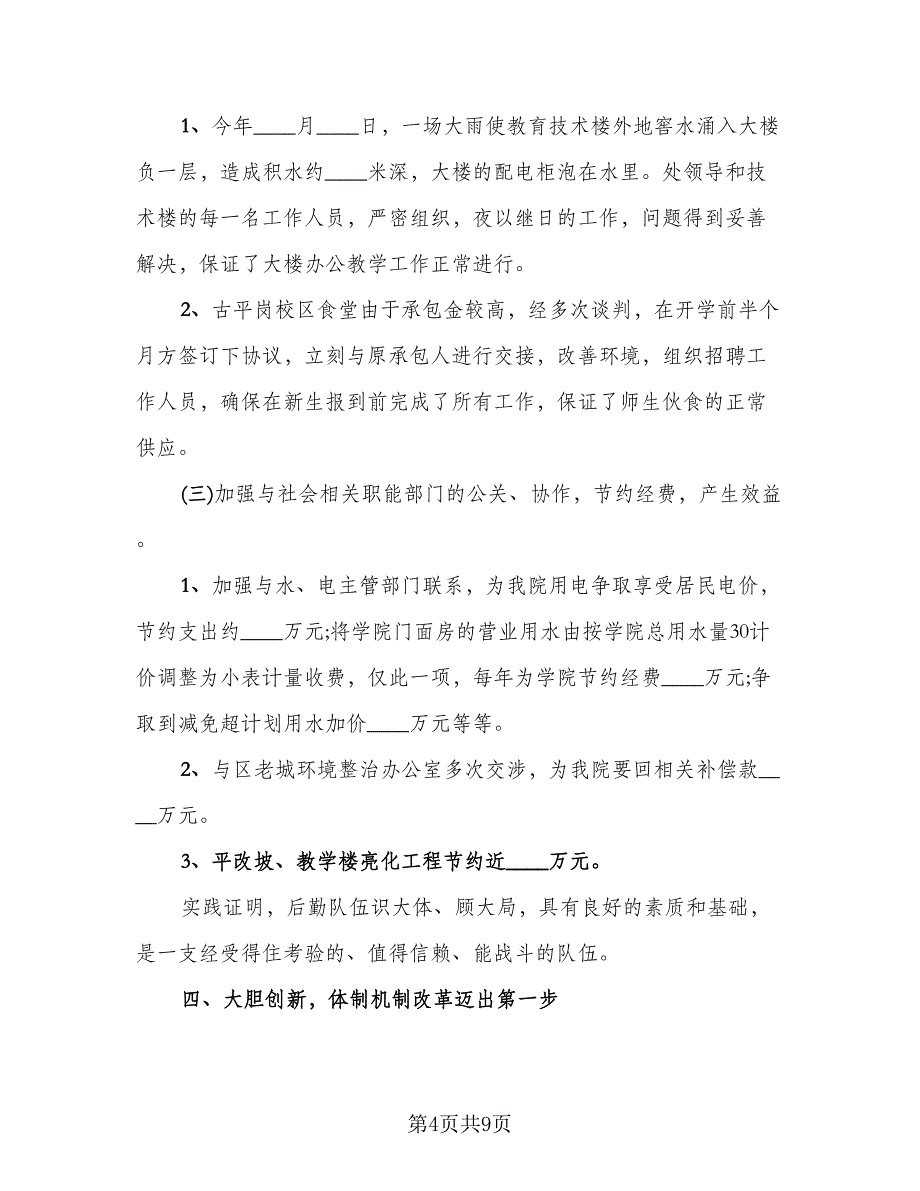 1、今年____月____日，一场大雨使教育技术楼外地窖水涌入大楼
负一层，造成积水约____米深，大楼的配电柜泡在水里。处领导和技
术楼的每一名工作人员，严密组织，夜以继日的工作，问题得到妥善
解决，保证了大楼办公教学工作正常进行。
2、古平岗校区食堂由于承包金较高，经多次谈判，在开学前半个
月方签订下协议，立刻与原承包人进行交接，改善环境，组织招聘工
作人员，确保在新生报到前完成了所有工作，保证了师生伙食的正常
供应。
(三)加强与社会相关职能部门的公关、协作，节约经费，产生效益
。
1、加强与水、电主管部门联系，为我院用电争取享受居民电价，
节约支出约____万元;将学院门面房的营业用水由按学院总用水量30计
价调整为小表计量收费，仅此一项，每年为学院节约经费____万元;争
取到减免超计划用水加价____万元等等。
2、与区老城环境整治办公室多次交涉，为我院要回相关补偿款__
__万元。
3、平改坡、教学楼亮化工程节约近____万元。
实践证明，后勤队伍识大体、顾大局，具有良好的素质和基础，
是一支经受得住考验的、值得信赖、能战斗的队伍。
四、大胆创新，体制机制改革迈出第一步
第4页共9页